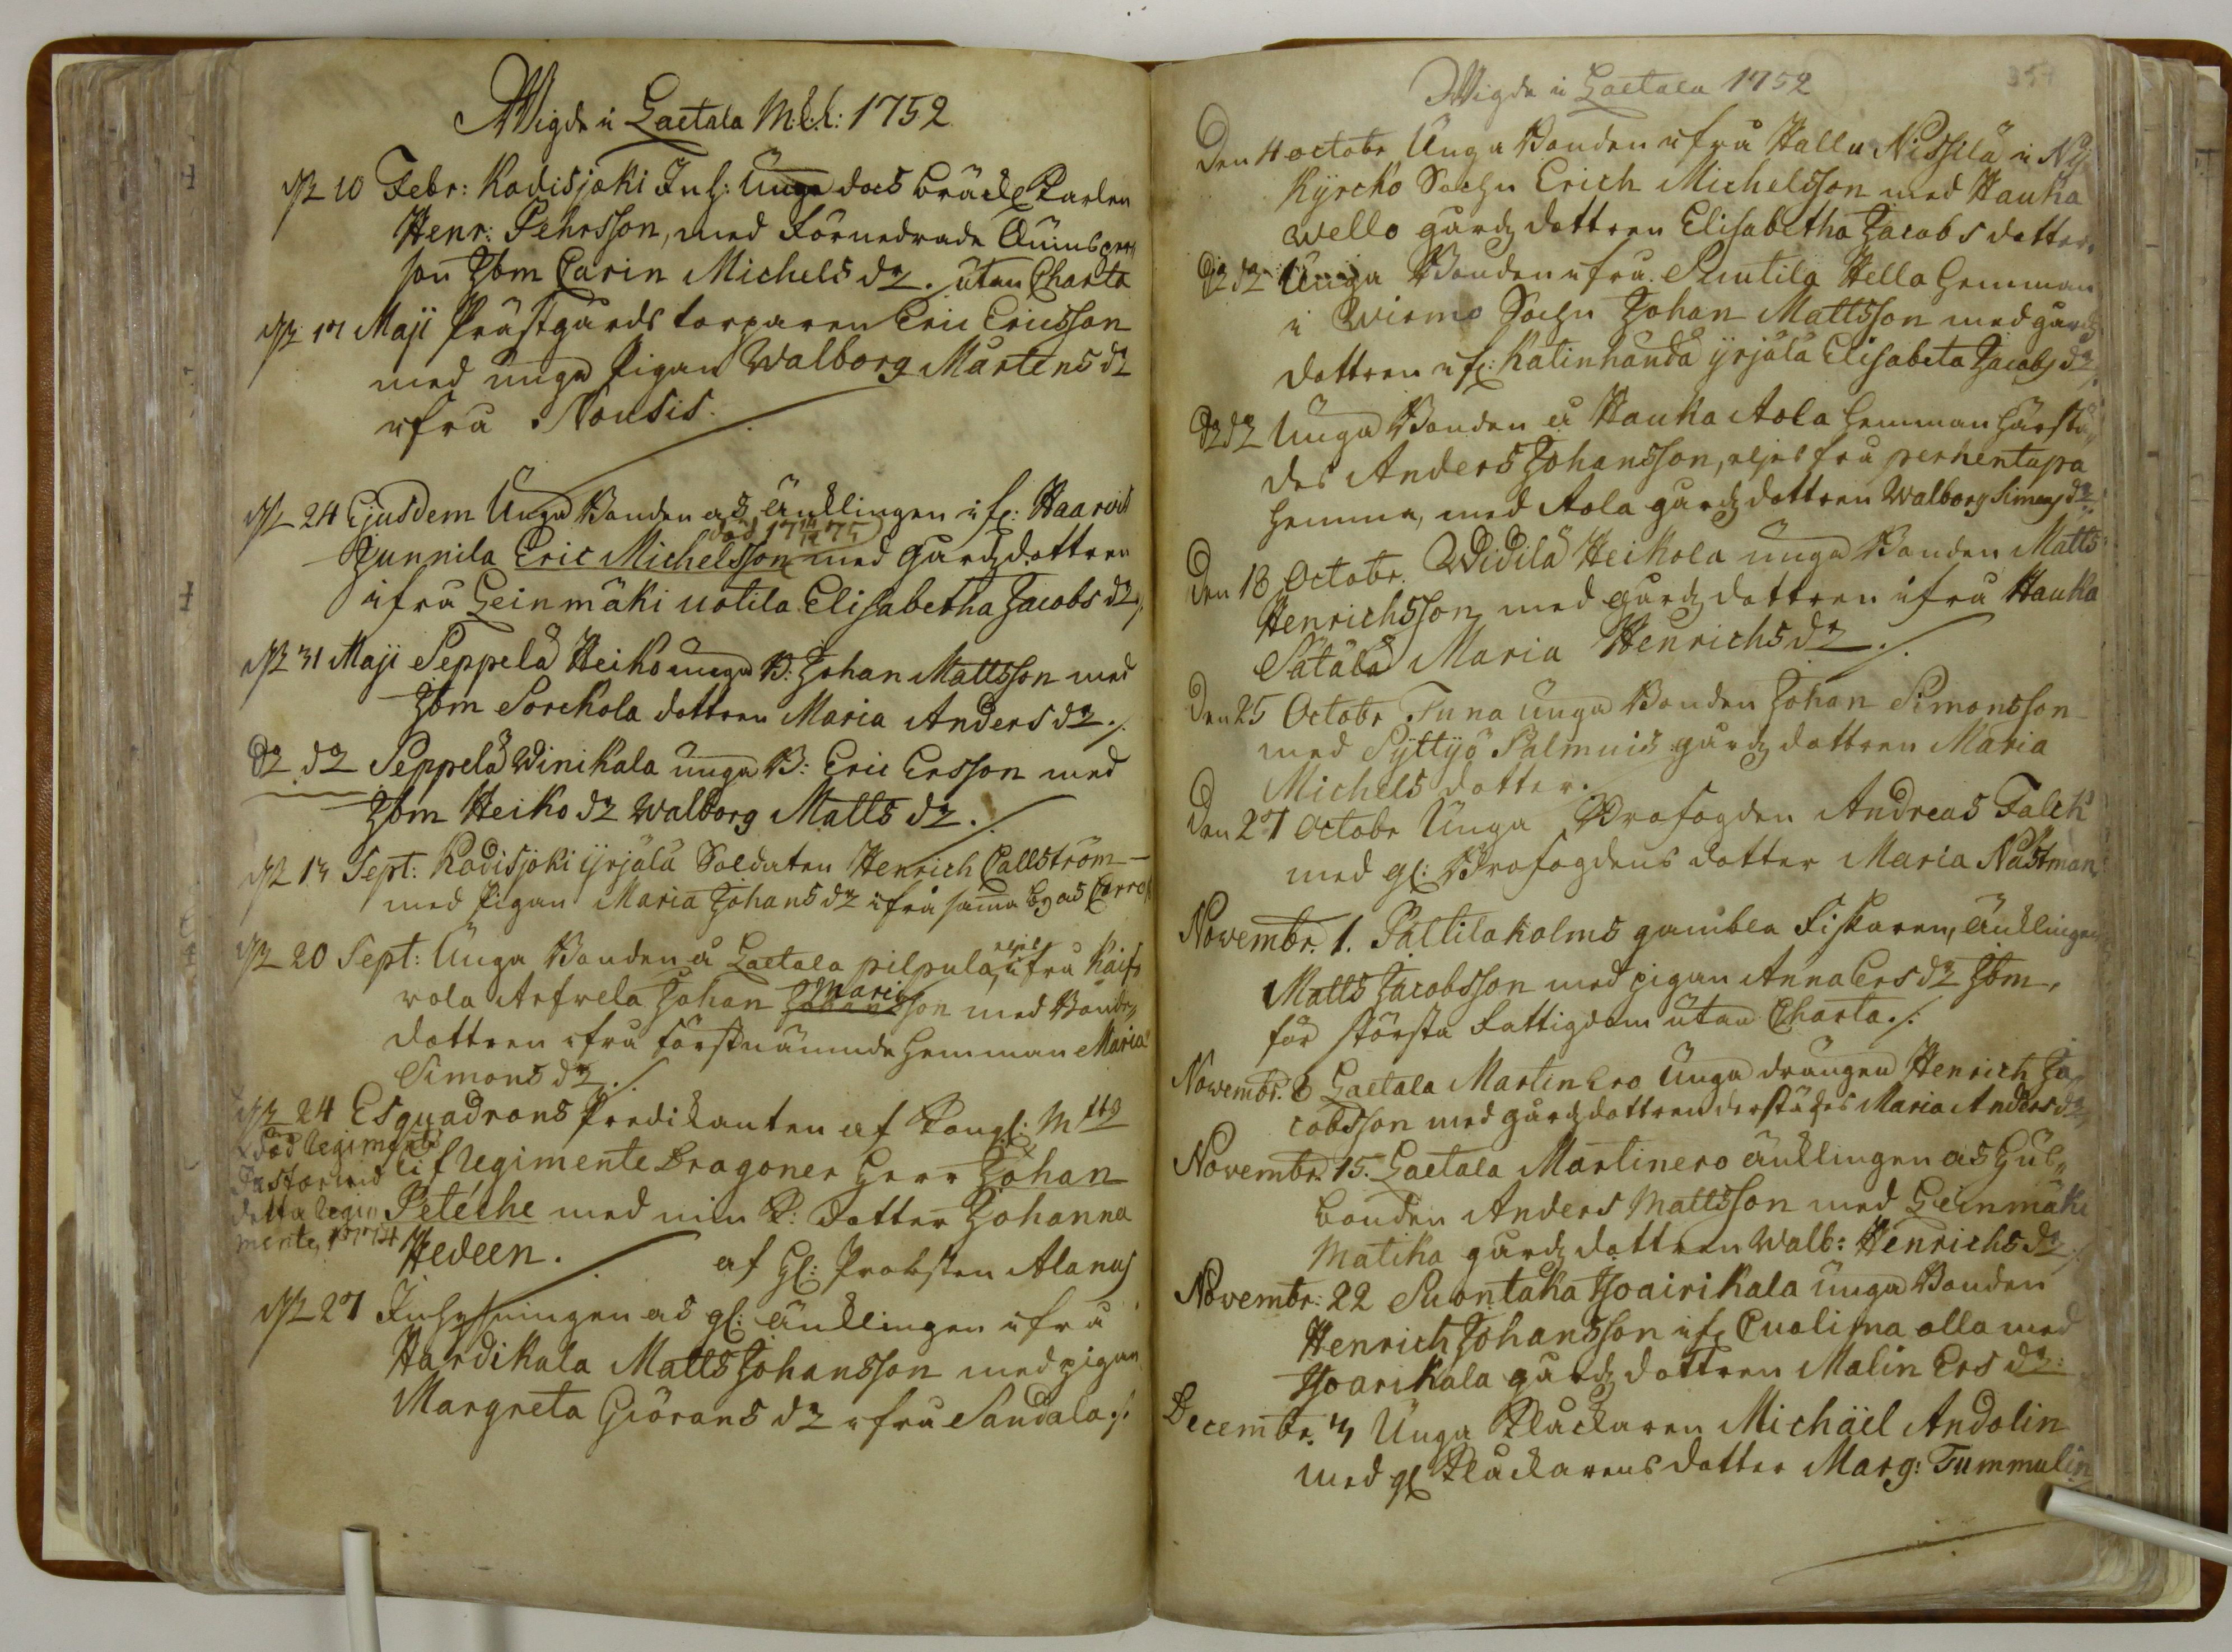 Wigde i Laetala M:K:K: 1752
d. 10 Febr: Kodisjoki Inh: Unga dock bräckl Karlen
Henr: Pehrsson, med Förnedrade Quins per-
son Jbm Carin Michels dr. utan Charta
d. 17 Maji Prästgårds torparen Eric Ericsson
med unga pigan Walborg Mårtens dr
ifrån Nousis.
d. 24 Ejusdem Unga Bonden och Änklingen ifr: Haarois
död 1775
Junnila Eric Michelsson med Gårdz dottren
ifrån Leinmäki uotila Elisabetha Jacobs dr
d. 31 Maji Seppelä Heiko unga B: Johan Mattsson med
Jbm Sorckola dottren Maria Anders dr ./.
dr dr Seppelä Winikala unga B: Eric Ersson med
Jbm Heiko dr Walborg Matts dr ./.
d. 13 Sept: Kodisjoki Yrjälä Soldaten Henrich Callström
med Pigan Maria Johans dr ifrån sama by och
d. 20 Sept: Unga Bonden å Laetala pilpula, eljest ifrån Kaifa
rola Arfvela Johan Johansson med Bonde
Maria
dottren ifrån förstnämnde hemman Maria
Simons dr ./.
d. 24 Esquadrons Predikanten af Kongl: Mtts
Lif Regimente Dragoner Herr Johan
Petéche med min K: dotter Johanna
Hedeen. af Gl: Probsten Alanus
x död Regiments
Pastor vid
detta Regi-
mente, 1774
d. 27 Inhysningen och gl: Änklingen ifrån
Hardikala Matts Johansson med pigan
Margreta Giörans dr ifrån Sandala ./.
Wigde i Laetala 1752
Den 4 octobr Unga Bonden ifrån Hallu Nissilä i Ny
Kyrcko Sochn Erich Michelsson med Hauka
Wello gårdz dottren Elisabetha Jacobs dotter.
dr dr Unga Bonden ifrån Suutila Hella Hemman
i Wirmo Sochn Johan Mattsson med gårdz
dottren ifr: Katinhanda Yrjälä Elisabeta Jacobs dr
dr dr Unga Bonden å Hauka Aola hemman härstä-
des Anders Johansson, eljes från perhentupa
hemma, med Aola gårdz dottren Walborg Simons dr
Den 18 Octobr. Widilä Heikola unga Bonden Matts
Henrichsson med gårdz dottren ifrån Hauka
Sätälä Maria Henrichs dr ./.
Den 25 Octobr Tuna Unga Bonden Johan Simonsson
med Syttyö Salmuis gårdz dottren Maria
Michels dotter.
Den 27 Octobr Unga Profogden Andreas Falck
med gl: Profogdens dotter Maria Nästman
Novembr. 1. Paltilaholms gambla Fiskaren, Änklingen
Matts Jacobsson med pigan Anna Ers dr Jbm,
för största Fattigdom utan Charta ./.
Novembr. 8 Laetala Martin Ero Unga drängen Henrich Ja-
cobsson med gårdz dottren derstädes Maria Anders dr
Novembr. 15. Laetala Martinero Änklingen och Hus-
bonden Anders Mattsson med Leinmäki
Matika gårdz dottren Walb: Henrichs dr
Novembr: 22 Suontaka Isoairikala unga Bonden
Henrich Johansson ifr Cuolima alla med
Isoarikala gårdz dottren Malin Ers dr:
Decembr. 3 Unga Klockaren Michäel Andolin
med gl Klockarens dotter Marg: Tummulin